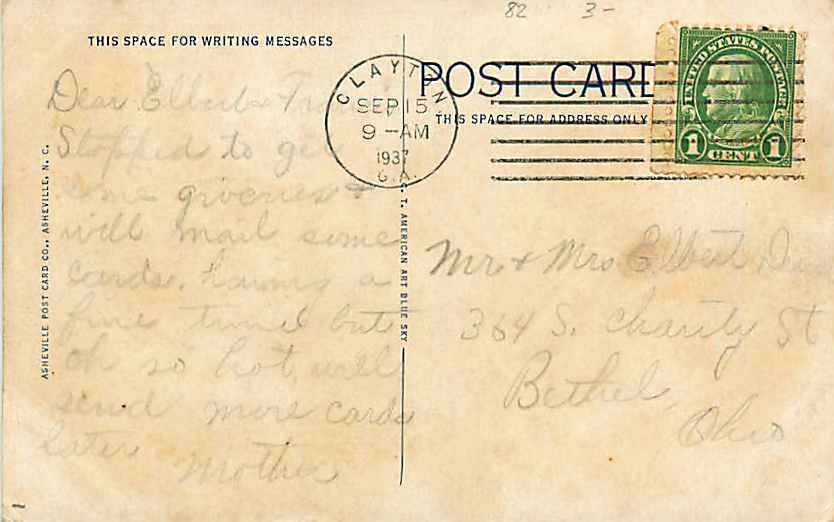 82 3-
THIS SPACE FOR WRITING MESSAGES
POST CARD
THIS SPACE FOR ADDRESS ONLY
CLAYTON,
SEP 15
9 - AM
1937
GA.
UNITED STATES POSTAGE
1 CENT 1
Dear Elbert &
Stopped to get
some groceries &
will mail some
cards. having a
fine time but
oh so hot will
send more cards
later
Mother
Mr & Mrs Elbert
364 S. Charity St
Bethel
Ohio
ASHEVILLE POST CARD CO., ASHEVILLE, N. C.
C. T. AMERICAN ART BLUE SKY